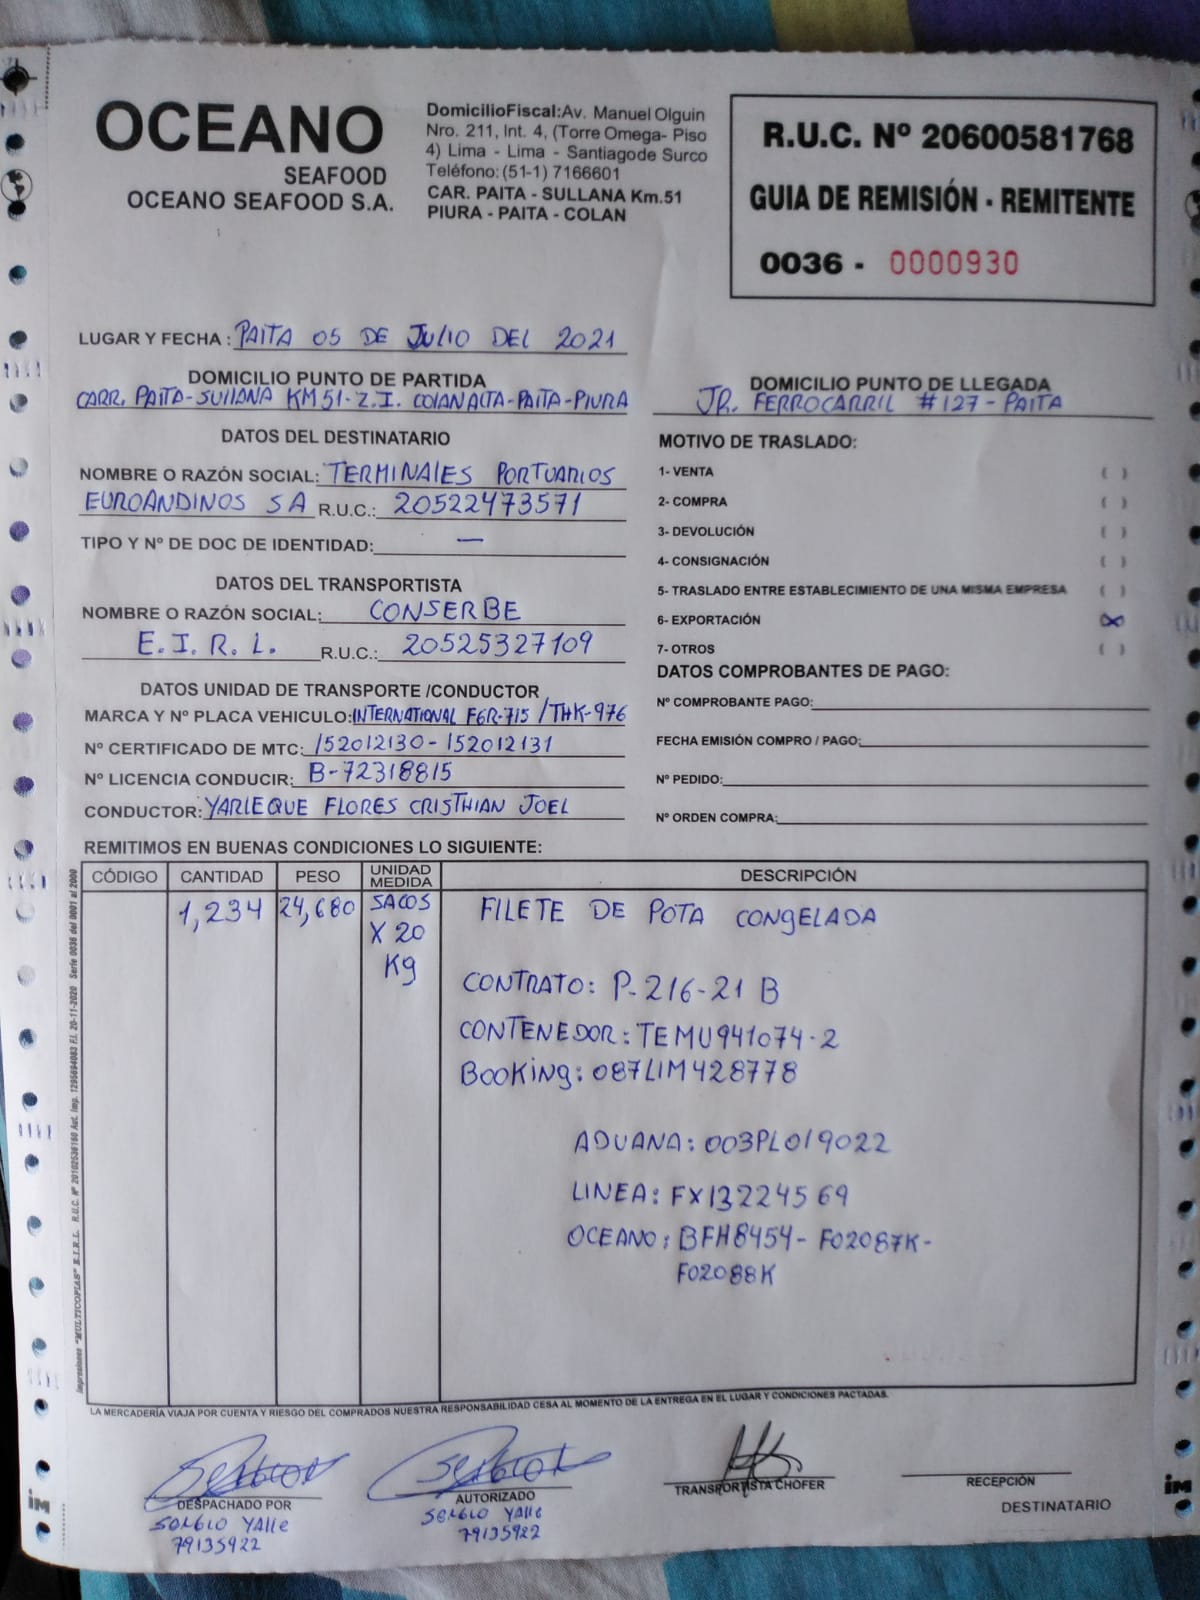 OCEANO
SEAFOOD
OCEANO SEAFOOD S.A.
DomicilioFiscal:Av. Manuel Olguin
Nro. 211, Int. 4, (Torre Omega- Piso
4) Lima - Lima - Santiagode Surco
Teléfono:(51-1) 7166601
CAR. PAITA - SULLANA Km.51
PIURA - PAITA - COLAN
R.U.C. Nº 20600581768
GUIA DE REMISIÓN - REMITENTE
0036 - 0000930
LUGAR Y FECHA : PAITA 05 DE JULIO DEL 2021
DOMICILIO PUNTO DE PARTIDA
CARR. PAITA-SULLANA KM 51-Z.I. COLAN ALTA-PAITA-PIURA
DOMICILIO PUNTO DE LLEGADA
JR. FERROCARRIL #127-PAITA
DATOS DEL DESTINATARIO
NOMBRE O RAZÓN SOCIAL: TERMINALES PORTUARIOS
EUROANDINOS SA R.U.C.: 20522473571
TIPO Y Nº DE DOC DE IDENTIDAD: —
DATOS DEL TRANSPORTISTA
NOMBRE O RAZÓN SOCIAL: CONSERBE
E.I.R.L. R.U.C.: 20525327109
DATOS UNIDAD DE TRANSPORTE /CONDUCTOR
MARCA Y Nº PLACA VEHICULO: INTERNATIONAL F6R-715 / THK-976
Nº CERTIFICADO DE MTC: 152012130-152012131
Nº LICENCIA CONDUCIR: B-72318815
CONDUCTOR: YARLEQUE FLORES CRISTHIAN JOEL
MOTIVO DE TRASLADO:
1- VENTA ( )
2- COMPRA ( )
3- DEVOLUCIÓN ( )
4- CONSIGNACIÓN ( )
5- TRASLADO ENTRE ESTABLECIMIENTO DE UNA MISMA EMPRESA ( )
6- EXPORTACIÓN (X)
7- OTROS ( )
DATOS COMPROBANTES DE PAGO:
Nº COMPROBANTE PAGO:
FECHA EMISIÓN COMPRO / PAGO:
Nº PEDIDO:
Nº ORDEN COMPRA:
REMITIMOS EN BUENAS CONDICIONES LO SIGUIENTE:
CÓDIGO CANTIDAD PESO UNIDAD MEDIDA DESCRIPCIÓN
1,234 24,680 SACOS FILETE DE POTA CONGELADA
X 20
Kg
CONTRATO: P-216-21 B
CONTENEDOR: TEMU941074-2
BOOKING: 087LIM428778
ADUANA: 003PL019022
LINEA: FX13224569
OCEANO: BFH8454- F02087K-
F02088K
Impresiones "MULTICOPIAS" E.I.R.L. R.U.C. Nº Aut. Imp. F.I. 20-11-2020 Serie 0036 del 0001 al 2000
LA MERCADERÍA VIAJA POR CUENTA Y RIESGO DEL COMPRADOS NUESTRA RESPONSABILIDAD CESA AL MOMENTO DE LA ENTREGA EN EL LUGAR Y CONDICIONES PACTADAS.
DESPACHADO POR
SERGIO YALLE
79135922
AUTORIZADO
SERGIO YALLE
79135922
TRANSPORTISTA CHOFER
RECEPCIÓN
DESTINATARIO
im
im